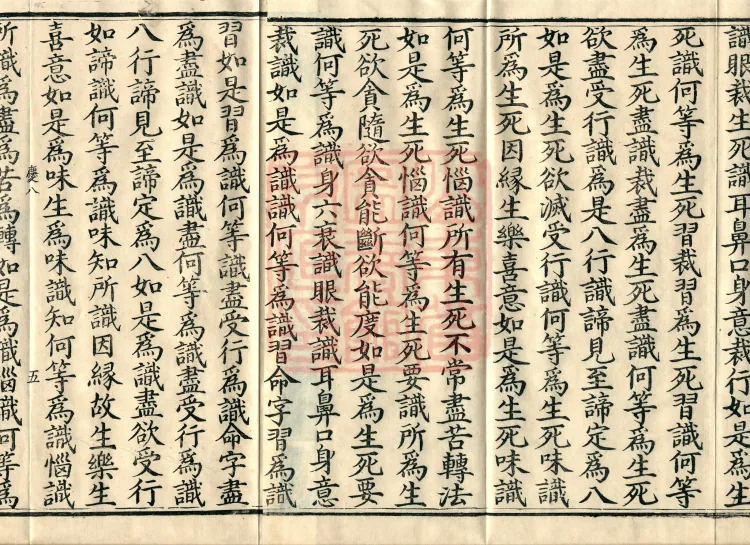 識眼裁生死識耳鼻口身意裁行如是為生
死識何等為生死習裁習為生死習識何等
為生死盡識裁盡為生死盡識何等為生死
欲盡受行識為是八行識諦見至諦定為八
如是為生死欲滅受行識何等為生死味識
所為生死因緣生樂喜意如是為生死味識
何等為生死惱識所有生死不常盡苦轉法
如是為生死惱識何等為生死要識所為生
死欲貪隨欲貪能斷欲能度如是為生死要
識何等為識身六衰識眼裁識耳鼻口身意
裁識如是為識識何等為識習命字習為識
習如是習為識何等識盡受行為識命字盡
為盡識如是為識盡何等為識盡受行為
八行諦見至諦定為八如是為識盡欲受行
如諦識何等為識味知所識因緣故生樂生
喜意如是為味生為味識知何等為識惱識
慶八
五
所識為盡為苦為轉如是為識惱識何等為